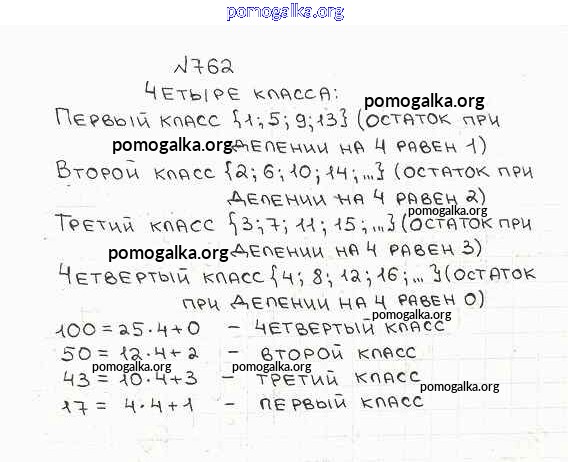 pomogalka.org
№762
ЧЕТЫРЕ КЛАССА:
pomogalka.org
ПЕРВЫЙ КЛАСС {1; 5; 9; 13} (ОСТАТОК ПРИ
pomogalka.org ДЕЛЕНИИ НА 4 РАВЕН 1)
ВТОРОЙ КЛАСС {2; 6; 10; 14; ...} (ОСТАТОК ПРИ
ДЕЛЕНИИ НА 4 РАВЕН 2)
pomogalka.org
ТРЕТИЙ КЛАСС {3; 7; 11; 15; ...} (ОСТАТОК ПРИ
pomogalka.org ДЕЛЕНИИ НА 4 РАВЕН 3)
ЧЕТВЕРТЫЙ КЛАСС {4; 8; 12; 16; ... } (ОСТАТОК
ПРИ ДЕЛЕНИИ НА 4 РАВЕН 0)
pomogalka.org
100 = 25 · 4 + 0 – ЧЕТВЕРТЫЙ КЛАСС
50 = 12 · 4 + 2 – ВТОРОЙ КЛАСС
pomogalka.org pomogalka.org
43 = 10 · 4 + 3 – ТРЕТИЙ КЛАСС
pomogalka.org
17 = 4 · 4 + 1 – ПЕРВЫЙ КЛАСС